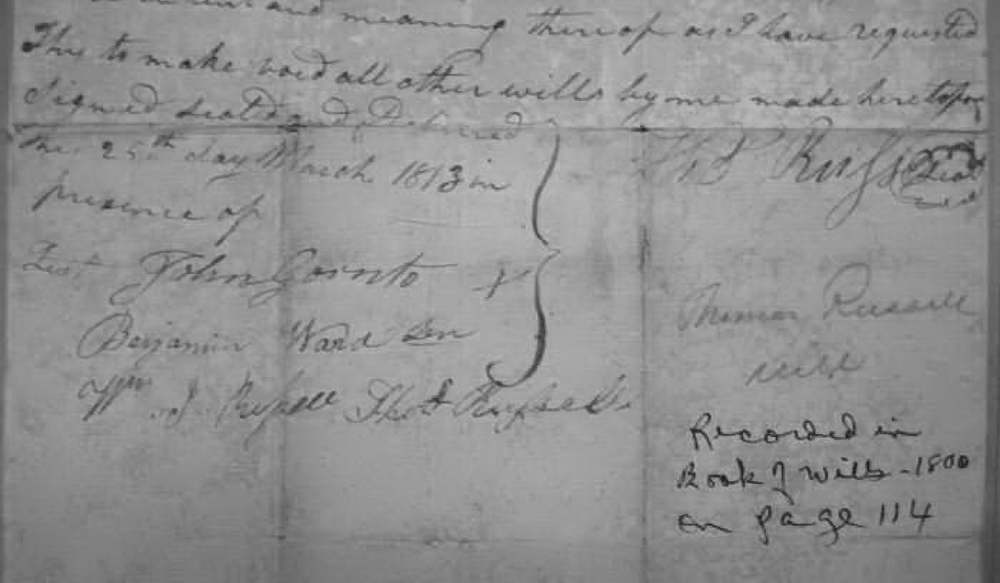 and meaning thereof as I have requested
This to make void all other wills by me made heretofore
Signed seald and Delivered
the 25th day March 1813 in
presence of
Thos Russell Seal
Test John Gointo X
Benjamin Ward Sen
Wm J. Russell Thos Russell
Thomas Russell
will
Recorded in
Book of Wills - 1800
on page 114